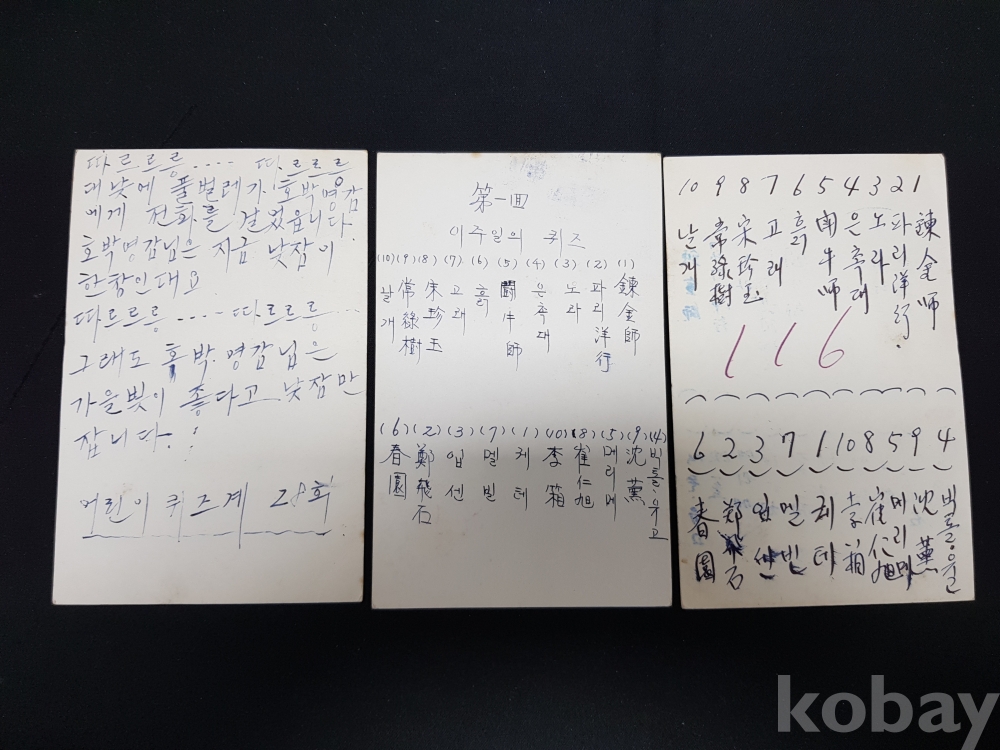 따르르릉 .... 따르르릉
대낮에 풀벌레가 호박명감
에게 전화를 걸었읍니다.
호박명감님은 지금 낮잠이
한참인대요
따르르릉 .... 따르르릉...
그래도 호박.명감님은
가을볕이 좋다고 낮잠만
잡니다.!
어린이 퀴즈계 28회
第一回
이주일의 퀴즈
(10)(9)(8)(7)(6)(5)(4)(3)(2)(1)
鍊金師
파리洋行
노라
은촉대
鬪牛師
흙
고래
朱珍玉
常綠樹
날개
(6)(2)(3)(7)(1)(10)(8)(5)(9)(4)
빅톨.유고
沈薰
메리메
崔仁旭
李箱
케테
멜빌
입센
鄭飛石
春園
10 9 8 7 6 5 4 3 2 1
鍊金师
파리洋行.
노라
은촉대
闘牛师
흙
고래
宋珍玉
常綠樹
날개
116
6 2 3 7 1 10 8 5 9 4
빅톨유
沈薰
메리메
崔仁旭
李箱
케테
멜빈
입센
鄭飛石
春園
kobay